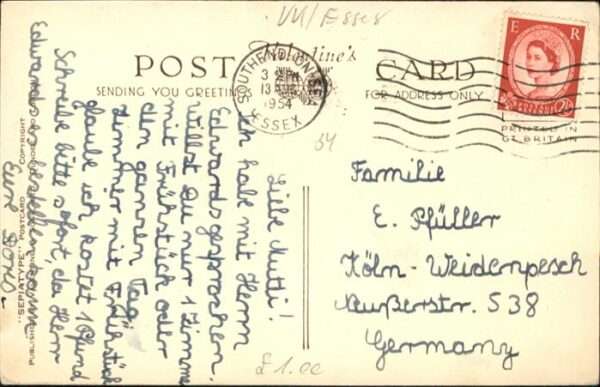 VII/Essex
POST CARD
Valentine's
SENDING YOU GREETINGS
FOR ADDRESS ONLY
SOUTHEND-ON-SEA
3
13
1954
ESSEX
E R
2½
PRINTED IN
GT BRITAIN
54
Liebe Mutti!
Ich habe mit Herrn
Edwards gesprochen.
Willst Du nur 1 Zimmer
mit Frühstück oder
den ganzen Tag?
Zimmer mit Frühstück
glaube ich kostet 1 Pfund
Schreibe bitte sofort, da Herr
Edwards es bestellen kann
Eure Doris
Familie
E. Pfüller
Köln-Weidenpesch
Neußerstr. 538
Germany
£1.00
"SEPIATYPE" POSTCARD
COPYRIGHT